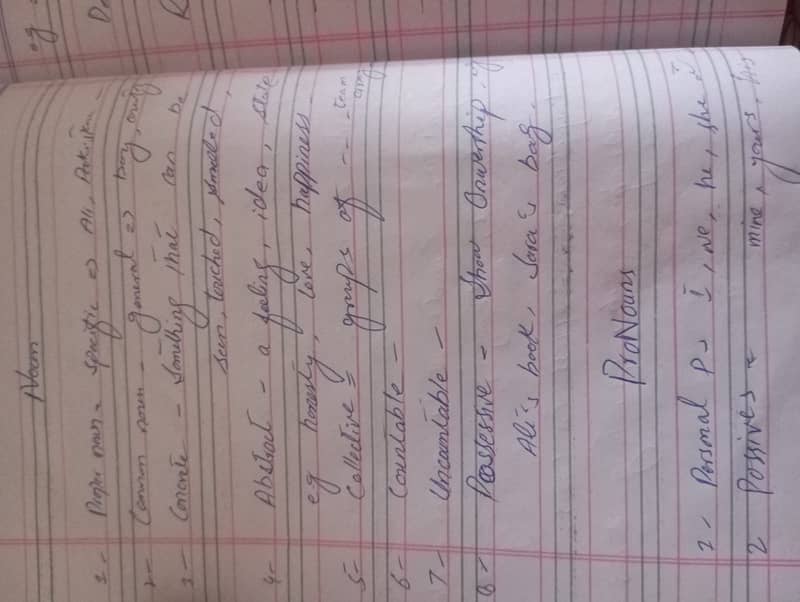 Noun
1- Proper noun - specific => Ali, Pakistan
2- Common noun - general => boy,
3- Concrete - something that can be
seen, touched, smelled,
4- Abstract - a feeling, idea, state
eg honesty, love, happiness
5- Collective = groups of -- team
6- Countable -
7- Uncountable -
8- Possessive - show Ownership.
Ali's book, Sara's bag.
ProNouns
1- Personal P- I, we, he, she
2 Possives - mine, yours, his